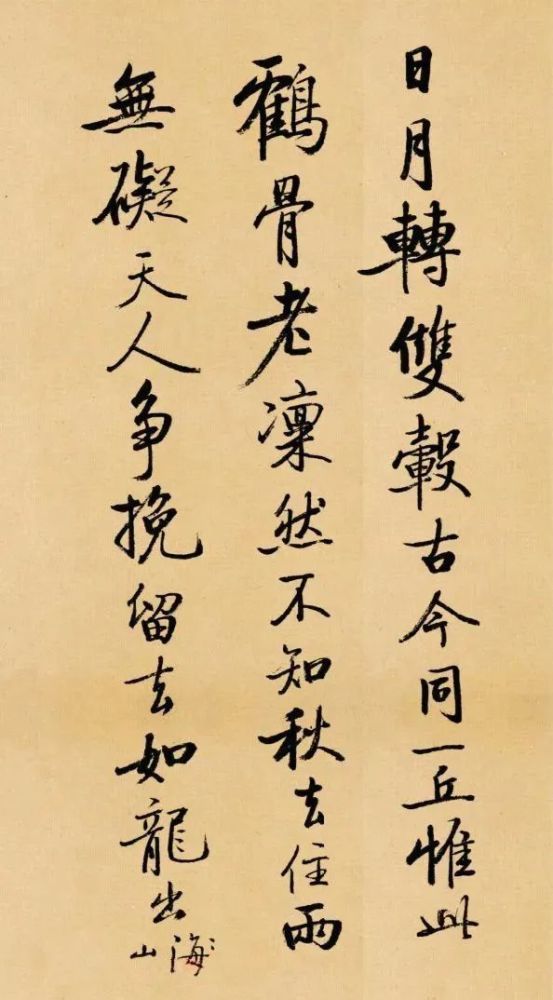 日月轉雙轂古今同一丘惟此
鶴骨老凜然不知秋去住兩
無礙天人争挽留去如龍出
海山